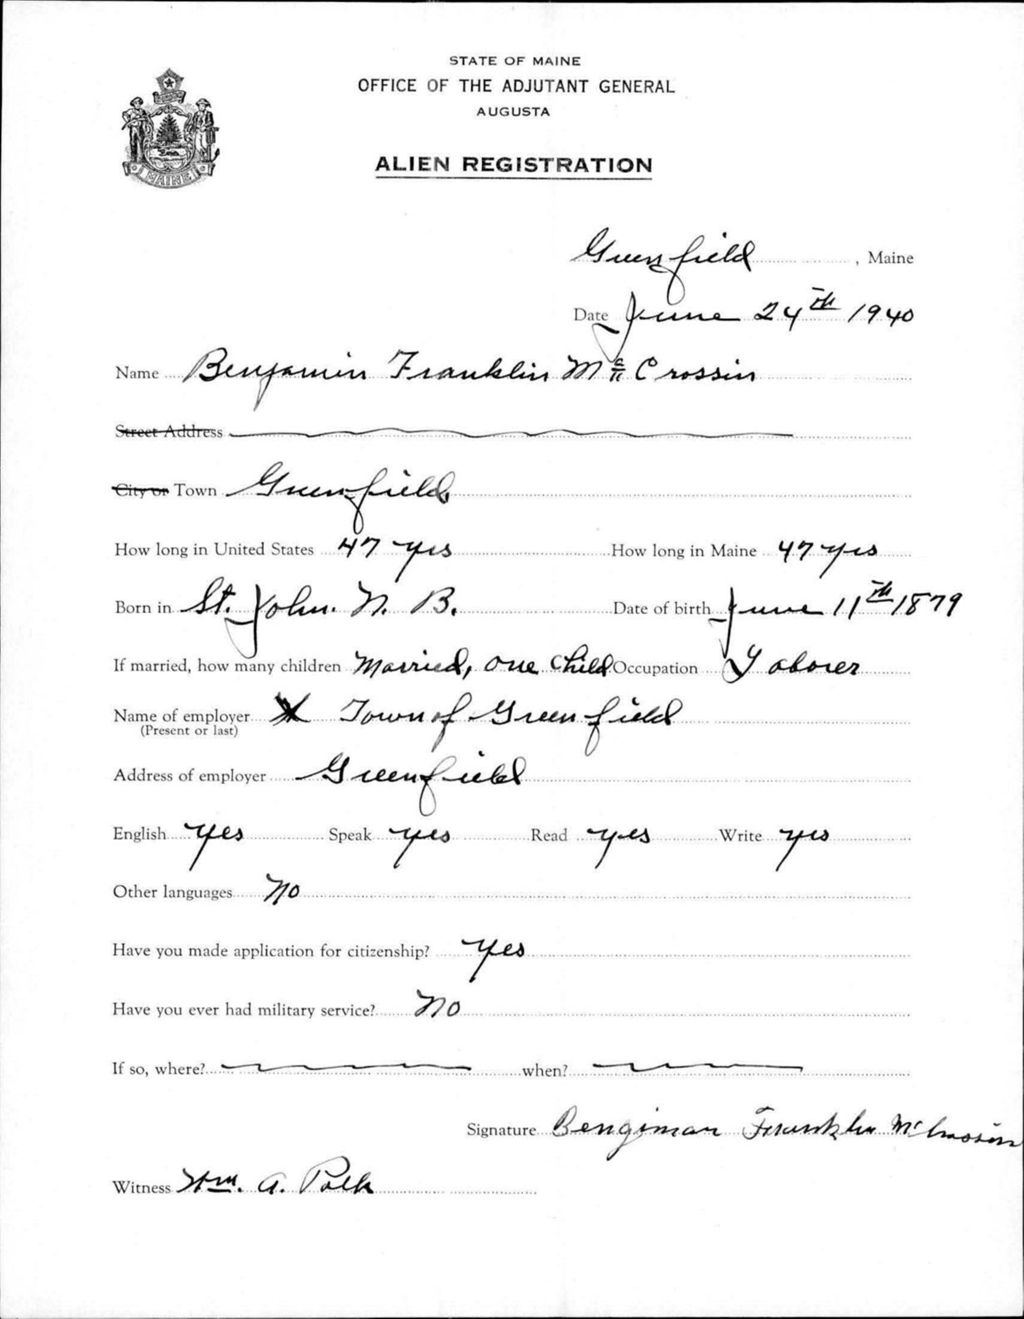 STATE OF MAINE
OFFICE OF THE ADJUTANT GENERAL
AUGUSTA
ALIEN REGISTRATION
MAINE
Greenfield, Maine
Date June 24th 1940
Name Benjamin Franklin Mc Crossin
Street Address
City or Town Greenfield
How long in United States 47 yrs How long in Maine 47 yrs
Born in St. John. N. B. Date of birth June 11th 1879
If married, how many children Married, one child Occupation Laborer
Name of employer Town of Greenfield
(Present or last)
Address of employer Greenfield
English yes Speak yes Read yes Write yes
Other languages No
Have you made application for citizenship? yes
Have you ever had military service? No
If so, where? when?
Signature Bengiman Franklin McCrossin
Witness Wm. A. Polk